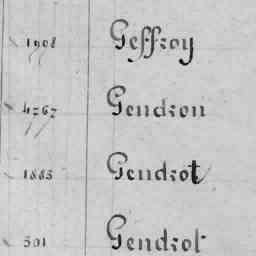 1908 Geffroy
4767 Gendron
1885 Gendrot
301 Gendrot